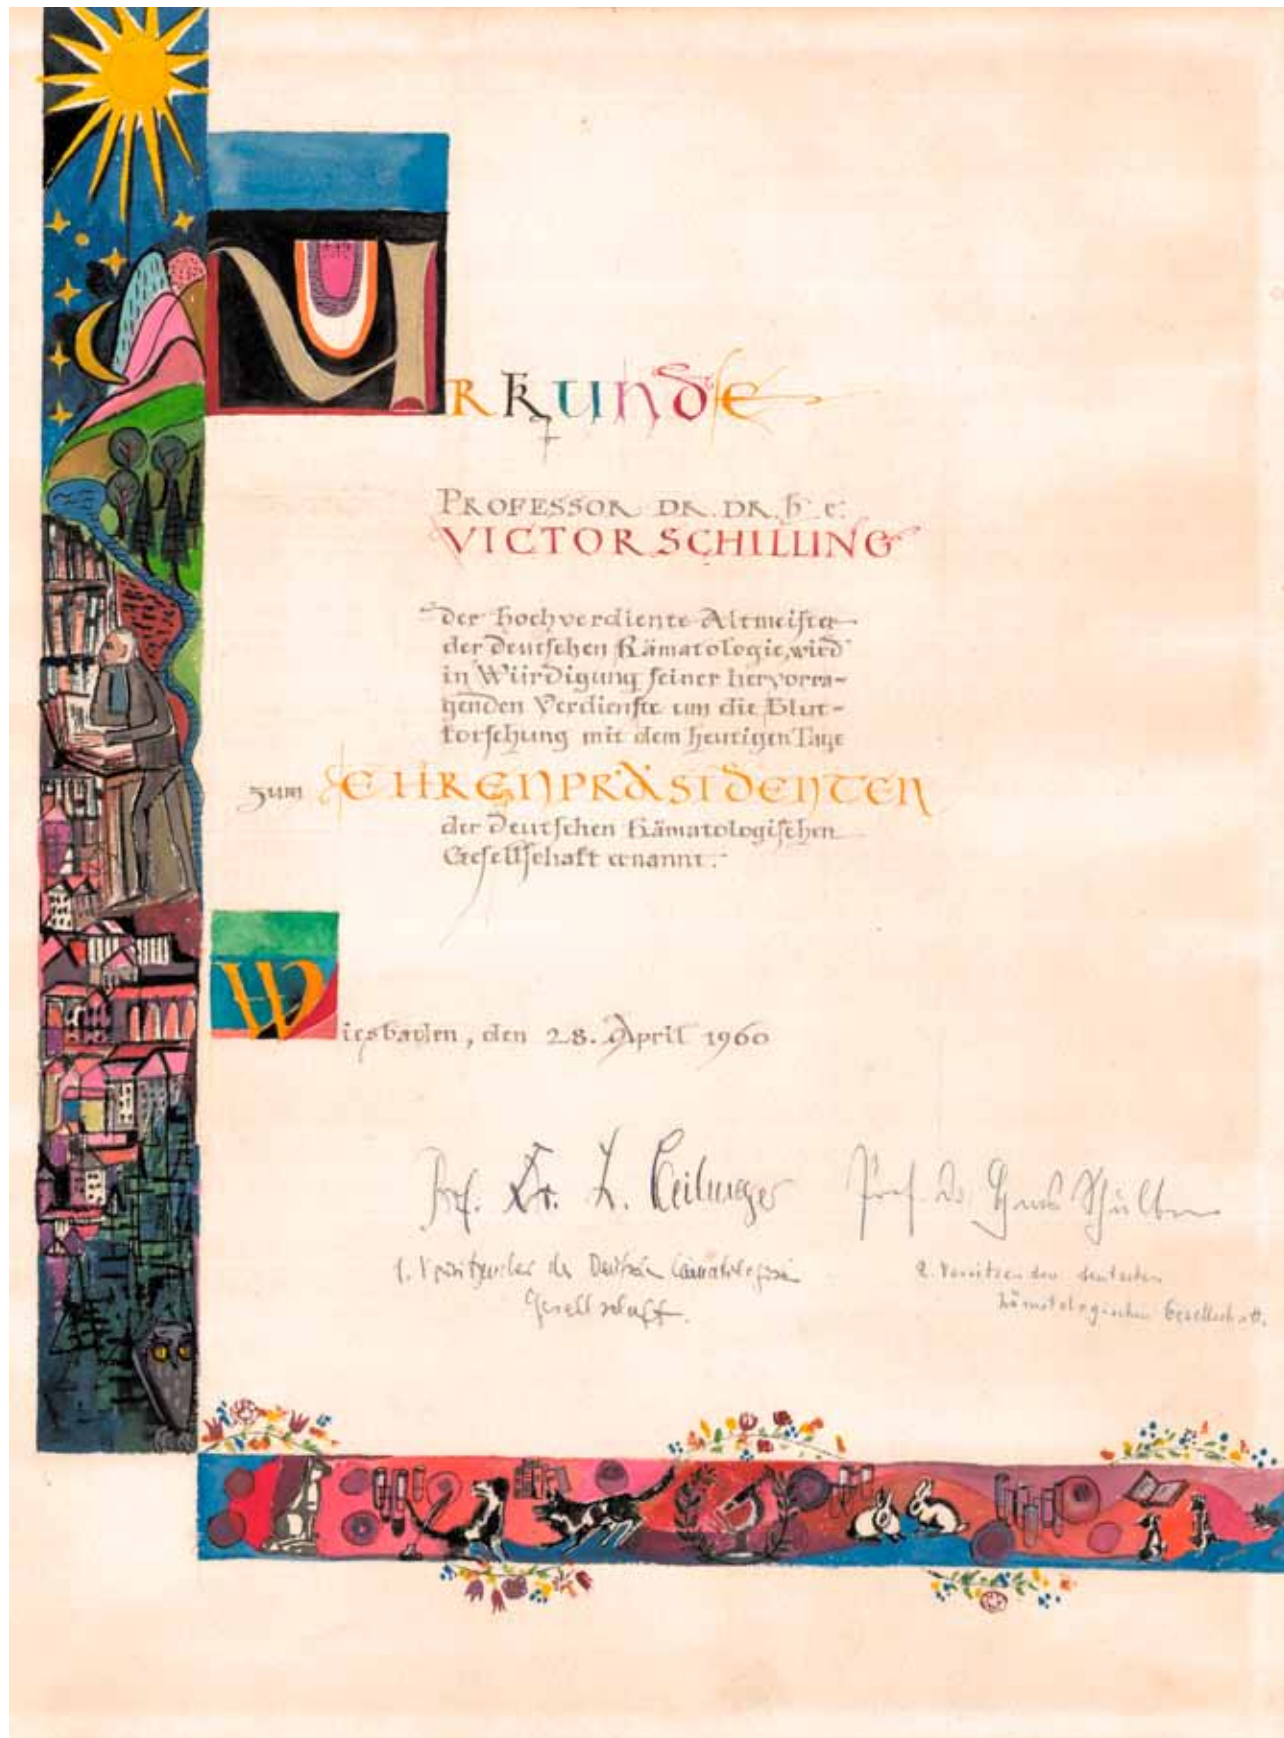 URKUNDE
PROFESSOR DR. DR. h. c.
VICTOR SCHILLING
Der hochverdiente Altmeister
der Deutschen Hämatologie, wird
in Würdigung seiner hervorra-
genden Verdienste um die Blut-
forschung mit dem heutigen Tage
zum EHRENPRÄSIDENTEN
der Deutschen Hämatologischen
Gesellschaft ernannt.
Wiesbaden, den 28. April 1960
Prof. Dr. L. Heilmeyer Prof. Dr.
1. Vorsitzender der Deutschen Hämatologischen 2. Vorsitzender der Deutschen
Gesellschaft. Hämatologischen Gesellschaft.